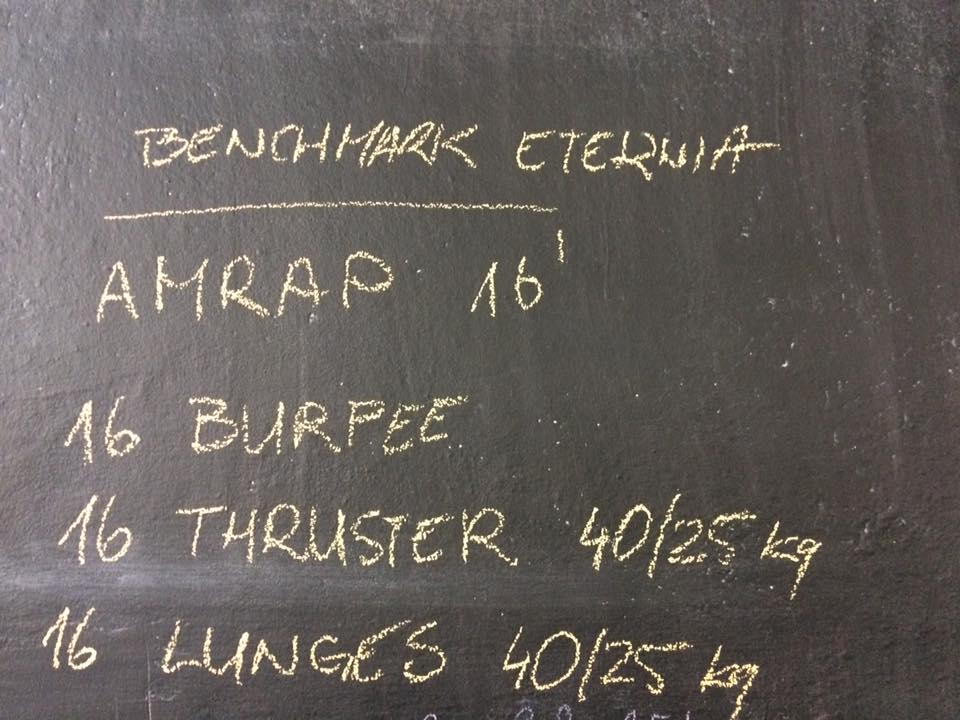 BENCHMARK ETERNIA
AMRAP 16'
16 BURPEE
16 THRUSTER 40/25 kg
16 LUNGES 40/25 kg